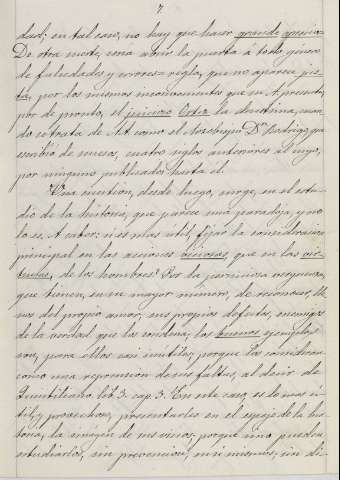 7
dad; en tal caso, no hay que hacer grande aprecio=
De otra suerte, seria abrir la puerta á todo género
de falsedades y errores= regla, que no aparece jus-
ta, por los mismos inconvenientes que en A. presenta,
por de pronto, el juicioso Ortiz la doctrina, cuan-
do se trata de A.A. como el Arzobispo Dn. Rodrigo, que
escribio de sucesos, cuatro siglos anteriores al suyo,
por ninguno publicados hasta él.
Una cuestion, desde luego, surge, en el estu-
dio de la historia, que parece una paradoja, y no
lo es. A saber: si es mas util, fijar la consideracion
principal en las acciones viciosas, que en las vir-
tuosas, de los hombres? Por la perniciosa verguenza,
que tienen, en su mayor número, de reconocer, lle-
nos del propio amor, sus propios defectos, enemigos
de la verdad que los condena; los buenos ejemplos
son, para ellos casi inutiles, porque los consideran
como una reprension de sus faltas, al decir de
Quintiliano. lib. 3. cap. 3. En este caso, es lo mas ú-
til, y provechoso, presentarles en el espejo de la his-
toria, la imagen de sus vicios, porque sino pueden
estudiarlos, sin prevencion, en si mismos, sin di-